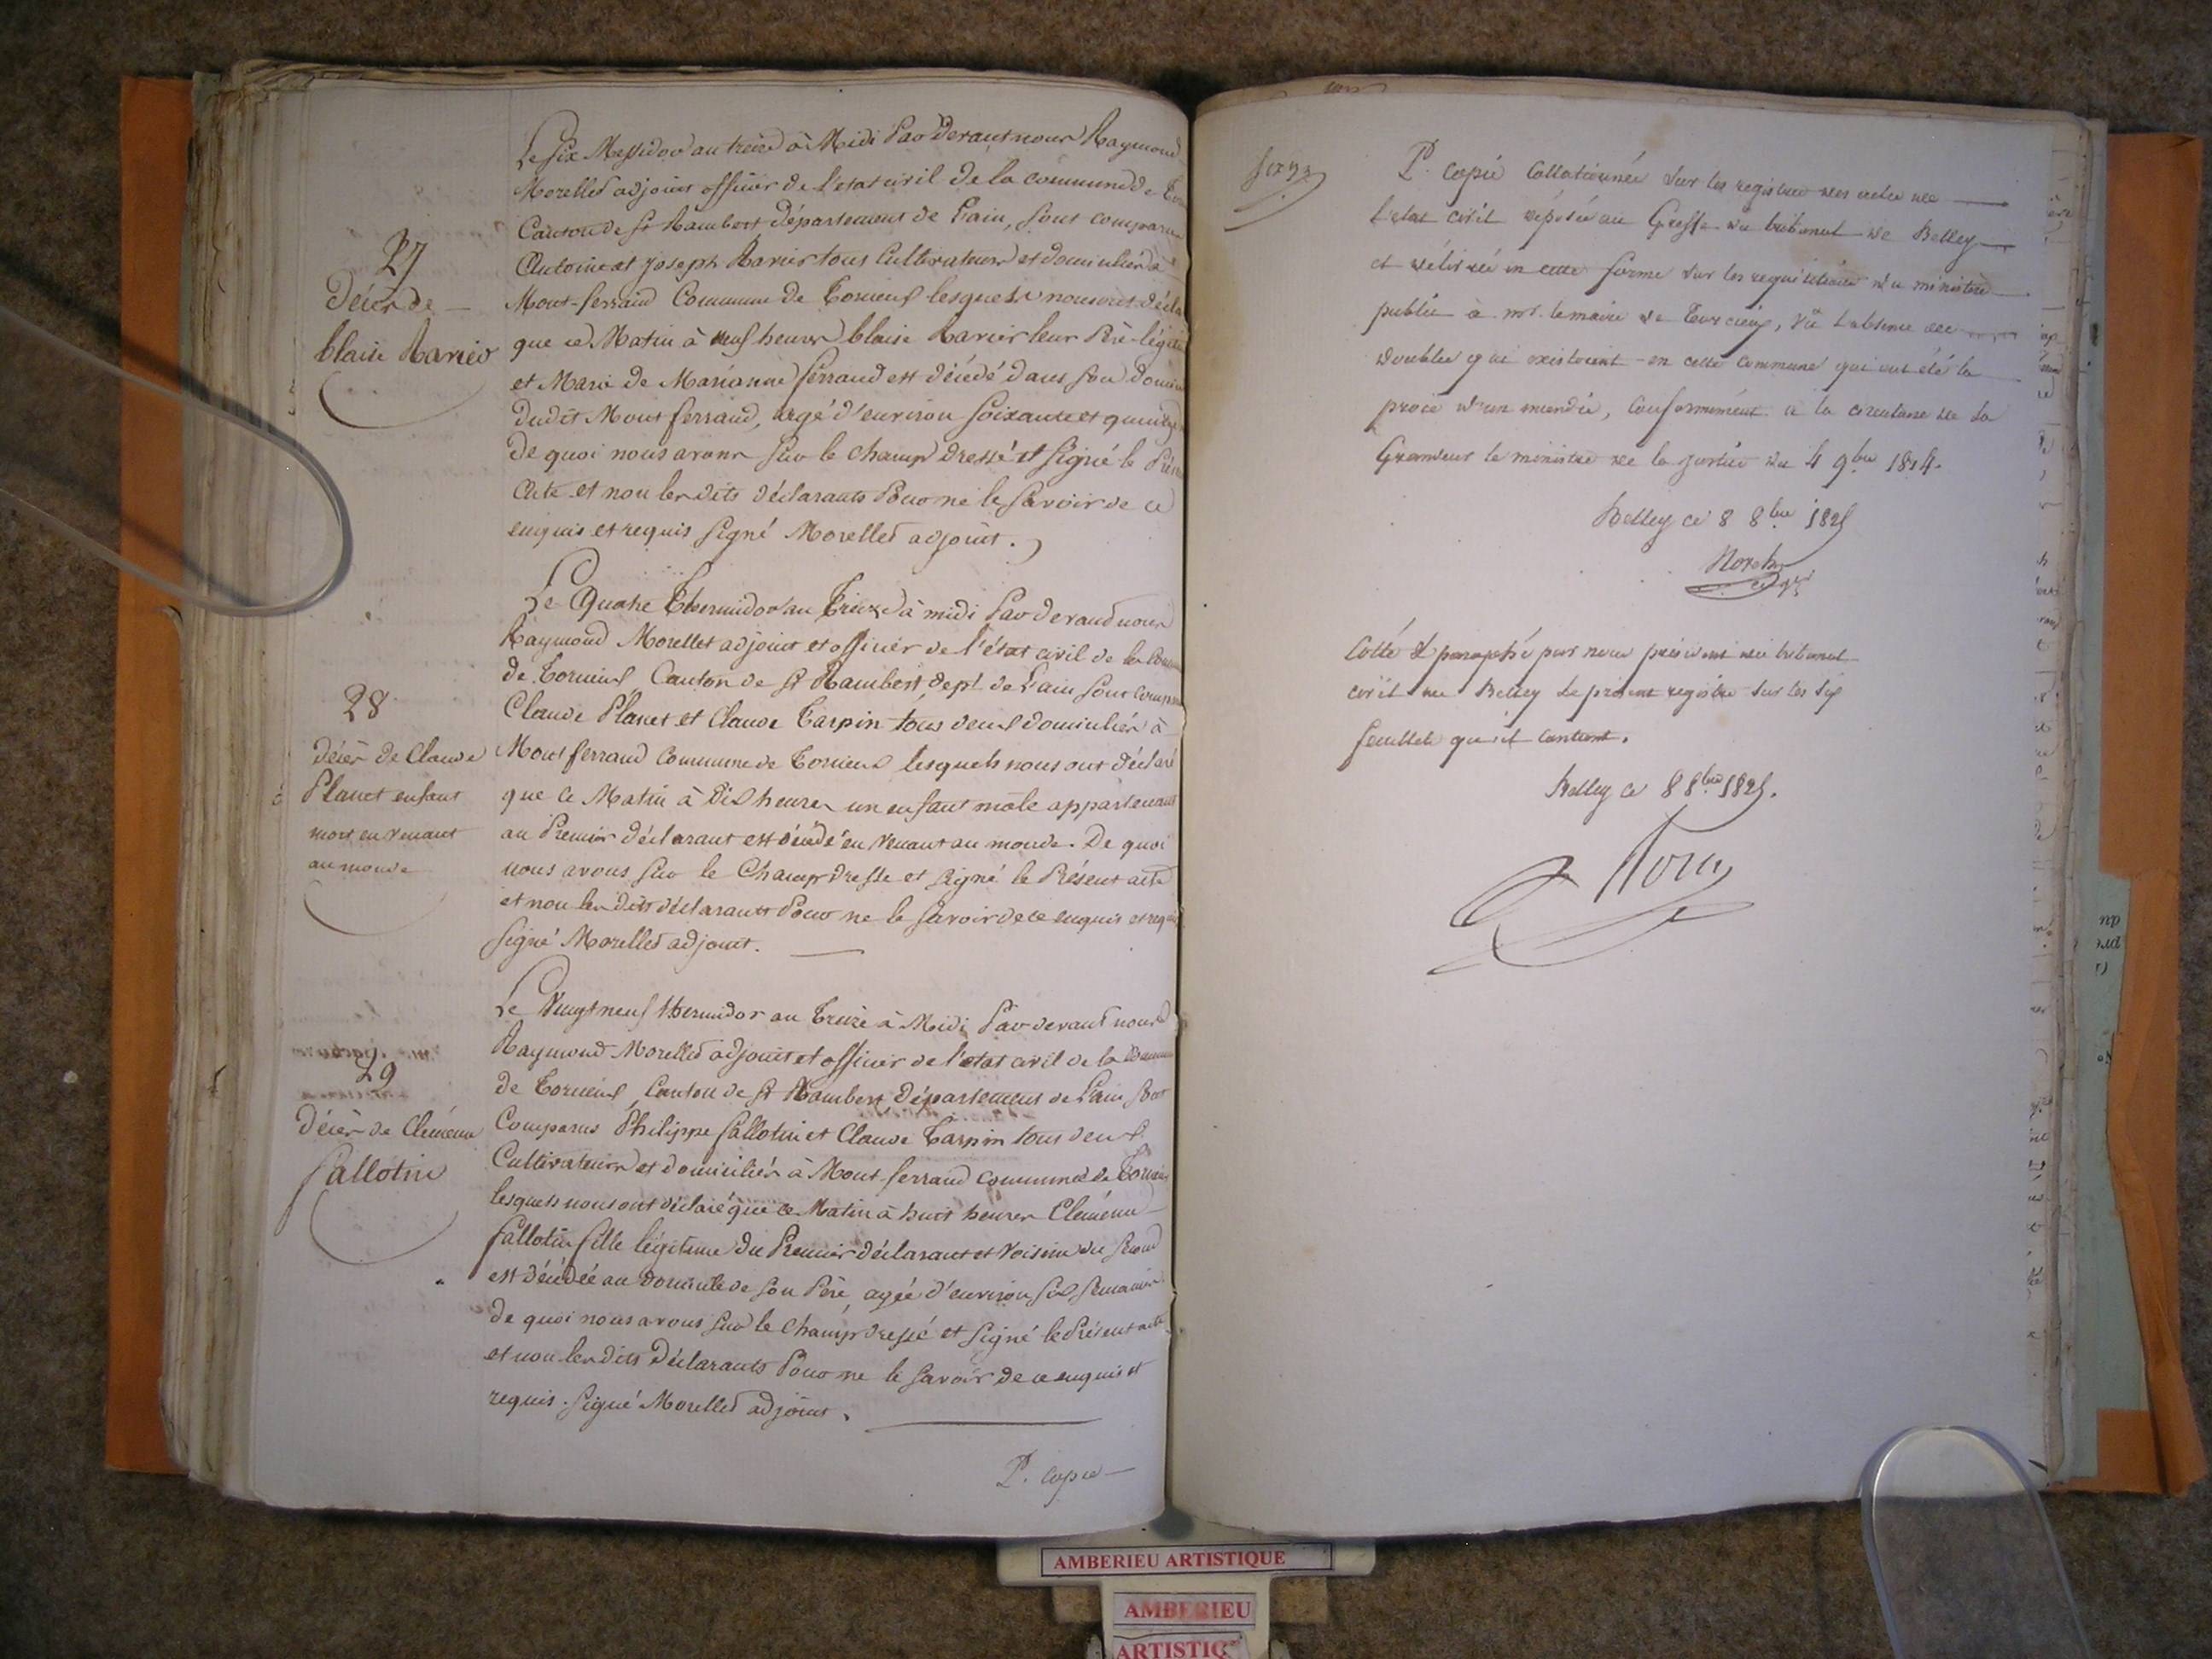 27
Décès de
blaise Ravier
Le six Messidor an treize à Midi Par Devant nous Raymond
Morellet adjoint officier de l'etat civil de la commune de
Canton de St Rambert Département de Lain, sont comparu
Antoine et joseph Ravier tous Cultivateurs et domiciliés à
Mont-ferrand Commune de Torcieus lesquels nous ont décla
que ce Matin à neuf heures blaise Ravier leur Père légit
et Mari de Marianne ferrand est décédé dans son domi
dudit Mont ferrand, agé d'environ soixante et quinze
de quoi nous avons sur le champ dressé et signé le Prés
Acte et non les dits déclarants Pour ne le savoir de ce
enquis et requis signé Morellet adjoint.
28
décès de Claude
Planet enfant
mort en venant
au monde
Le Quatre Thermidor an Treize à midi Par devand nous
Raymond Morellet adjoint et officier de l'état civil de la
de Torcieus Canton de St Rambert, dept. de Lain sont comp
Claude Planet et Claude Tarpin tous deux domiciliés à
Mont ferrand Commune de Torcieus lesquels nous ont déclaré
que ce Matin à dix heures un enfant mâle appartenant
au Premier déclarant est décédé en venant au monde. De quoi
nous avons sur le Champ dressé et signé le Présent acte
et non les dits déclarants Pour ne le savoir de ce enquis et requi
signé Morellet adjoint.
29
Décès de Clémence
fallotin
Le Vingt neuf thermidor an Treize à Midi Par devant nous
Raymond Morellet adjoint et officier de l'etat civil de la
de Torcieus Canton de St Rambert Département de Lain Sont
Comparus Philippe fallotin et Claude Tarpin tous deux
Cultivateurs et domiciliés à Mont-ferrand commune de Torcieus
lesquels nous ont déclaré que ce Matin à huit heures Clémence
fallotin fille légitime du Premier déclarant et voisine du second
est décédée au domicile de son Père, agée d'environ six semaines
de quoi nous avons sur le champ dressé et signé le Présent acte
et non les dits Déclarants Pour ne le savoir de ce enquis et
requis. signé Morellet adjoint.
P. copie
P. copie Collationnée sur les registres des actes de
l'etat civil déposée au Greffe du tribunal de Belley
et délivrée en cette forme sur les requisitoire du ministere
public à mr. le maire de Torcieux, vû l'absence des
doubles qui existoient en cette commune qui ont été la
proie d'un incendie, Conformément à la circulaire de sa
Grandeur le ministre de la justice du 4 9bre 1814.
Belley ce 8 8bre 1825
Cotté & paraphé par nous président du tribunal
civil de Belley le présent registre sur les six
feuillets qu'il contient.
Belley ce 8 8bre 1825.
AMBERIEU ARTISTIQUE
AMBERIEU
ARTISTIQ